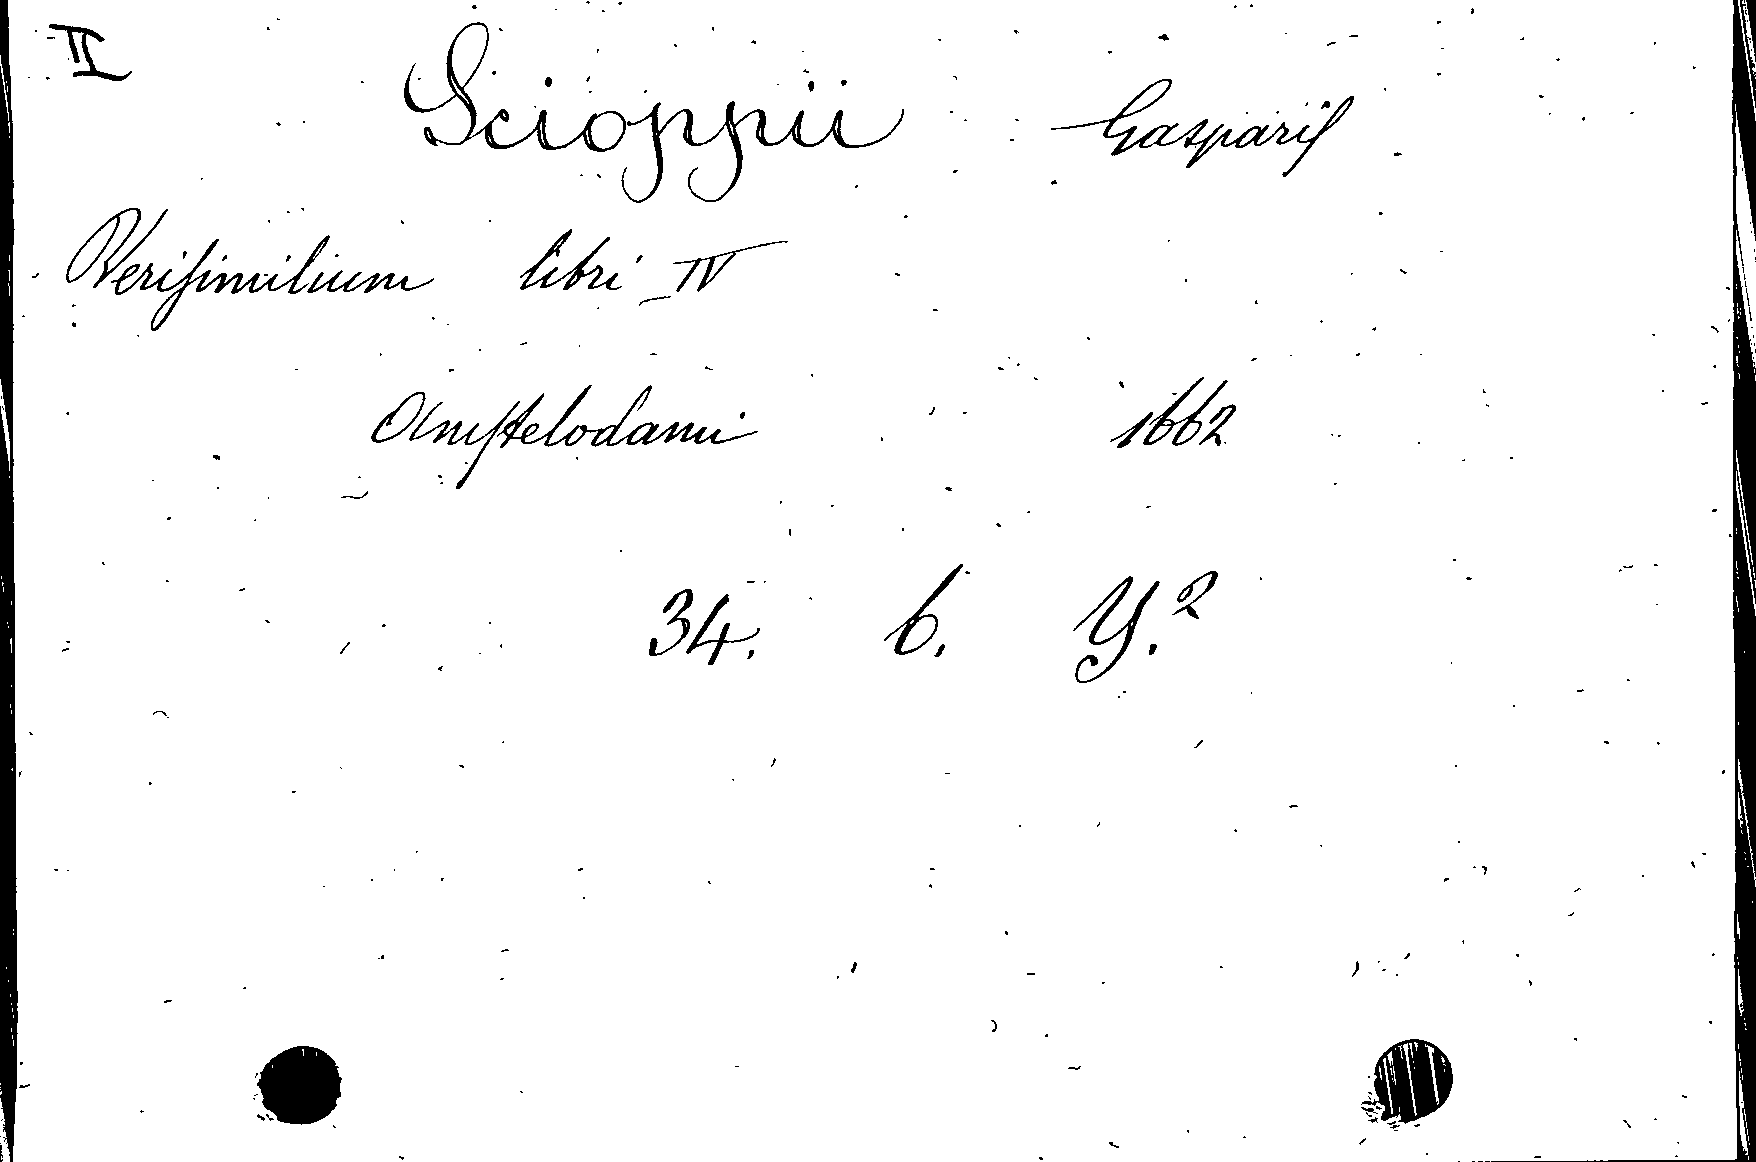 II
Scioppii Gasparis
Verisimilium libri IV
Amstelodami 1662
34. b. Y.²